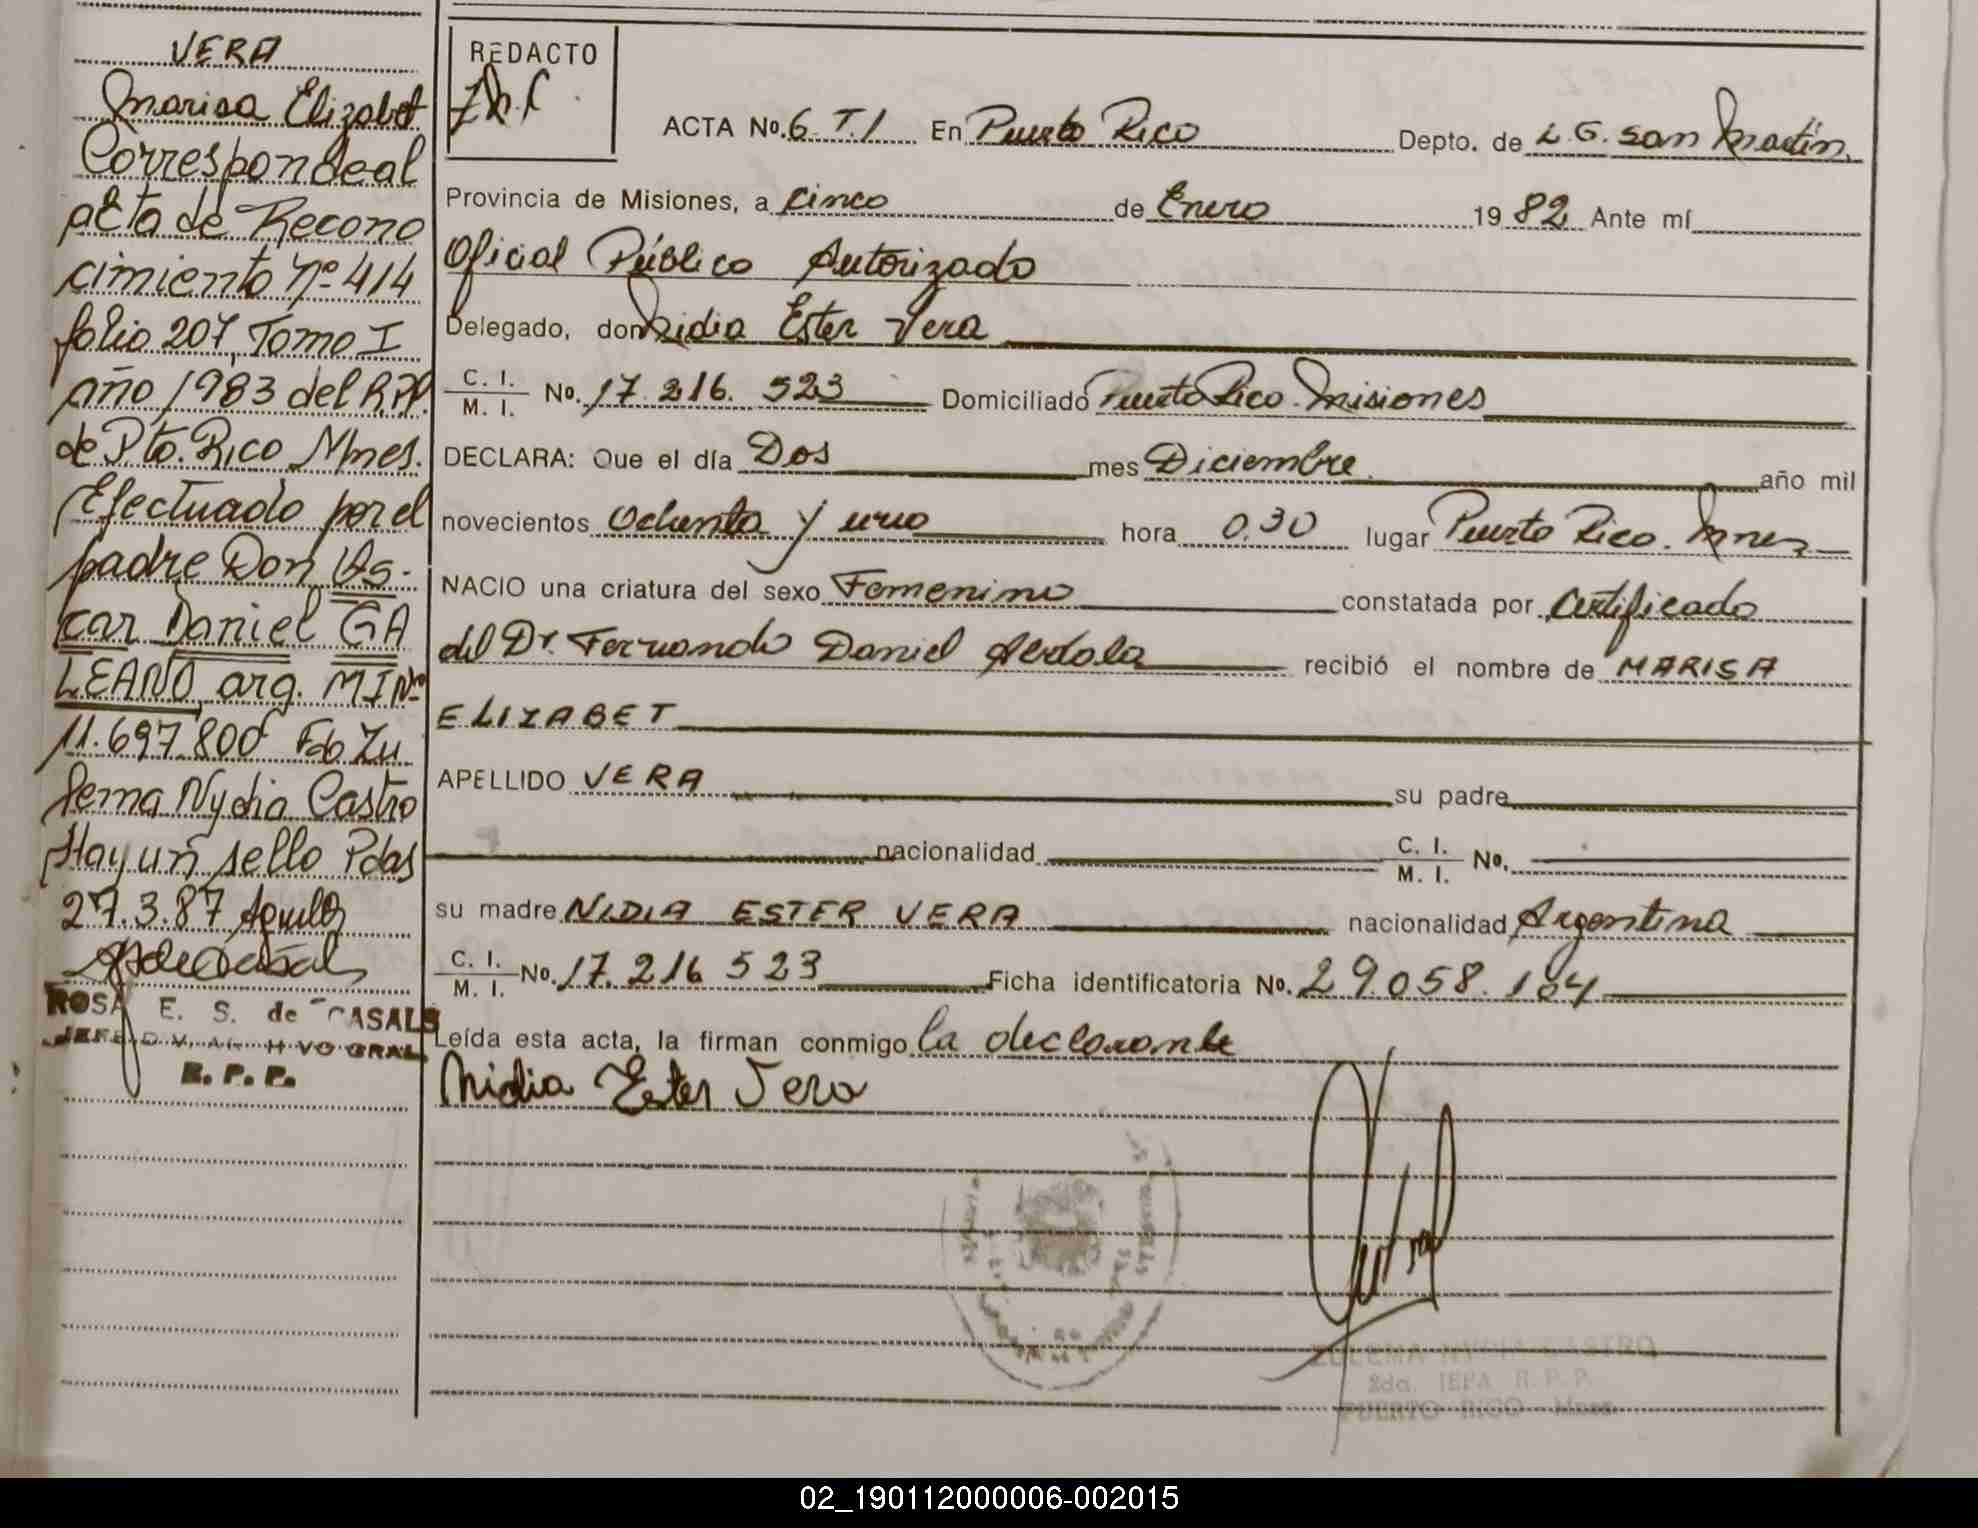 VERA
Marisa Elizabet
Corresponde al
acta de Recono
cimiento Nº 414
folio 207, Tomo I
año 1983 del R.P.
de Pto. Rico Mnes.
Efectuado por el
padre Don Os-
car Daniel GA
LEANO arg. MI Nº
11.697.800 Fdo Zu
lema Nydia Castro
Hay un sello Pdas
27.3.87
ROSA E. S. de CASALS
R. P. P.
REDACTO
ACTA No. 6 T.I En Puerto Rico Depto. de L.G. San Martín
Provincia de Misiones, a cinco de Enero 1982 Ante mí
Oficial Público Autorizado
Delegado, don Nidia Ester Vera
C. I. / M. I. No. 17.216.523 Domiciliado Puerto Rico. Misiones
DECLARA: Que el día Dos mes Diciembre año mil
novecientos Ochenta y uno hora 0.30 lugar Puerto Rico. Mnes
NACIO una criatura del sexo Femenino constatada por Certificado
del Dr. Fernando Daniel recibió el nombre de MARISA
ELIZABET
APELLIDO VERA su padre
nacionalidad C. I. / M. I. No.
su madre NIDIA ESTER VERA nacionalidad Argentina
C. I. / M. I. No. 17.216 523 Ficha identificatoria No. 29.058.184
Leída esta acta, la firman conmigo la declarante
Nidia Ester Vera
ZULEMA NYDIA CASTRO
2da. JEFA R. P. P.
PUERTO RICO - Mnes.
02_190112000006-002015